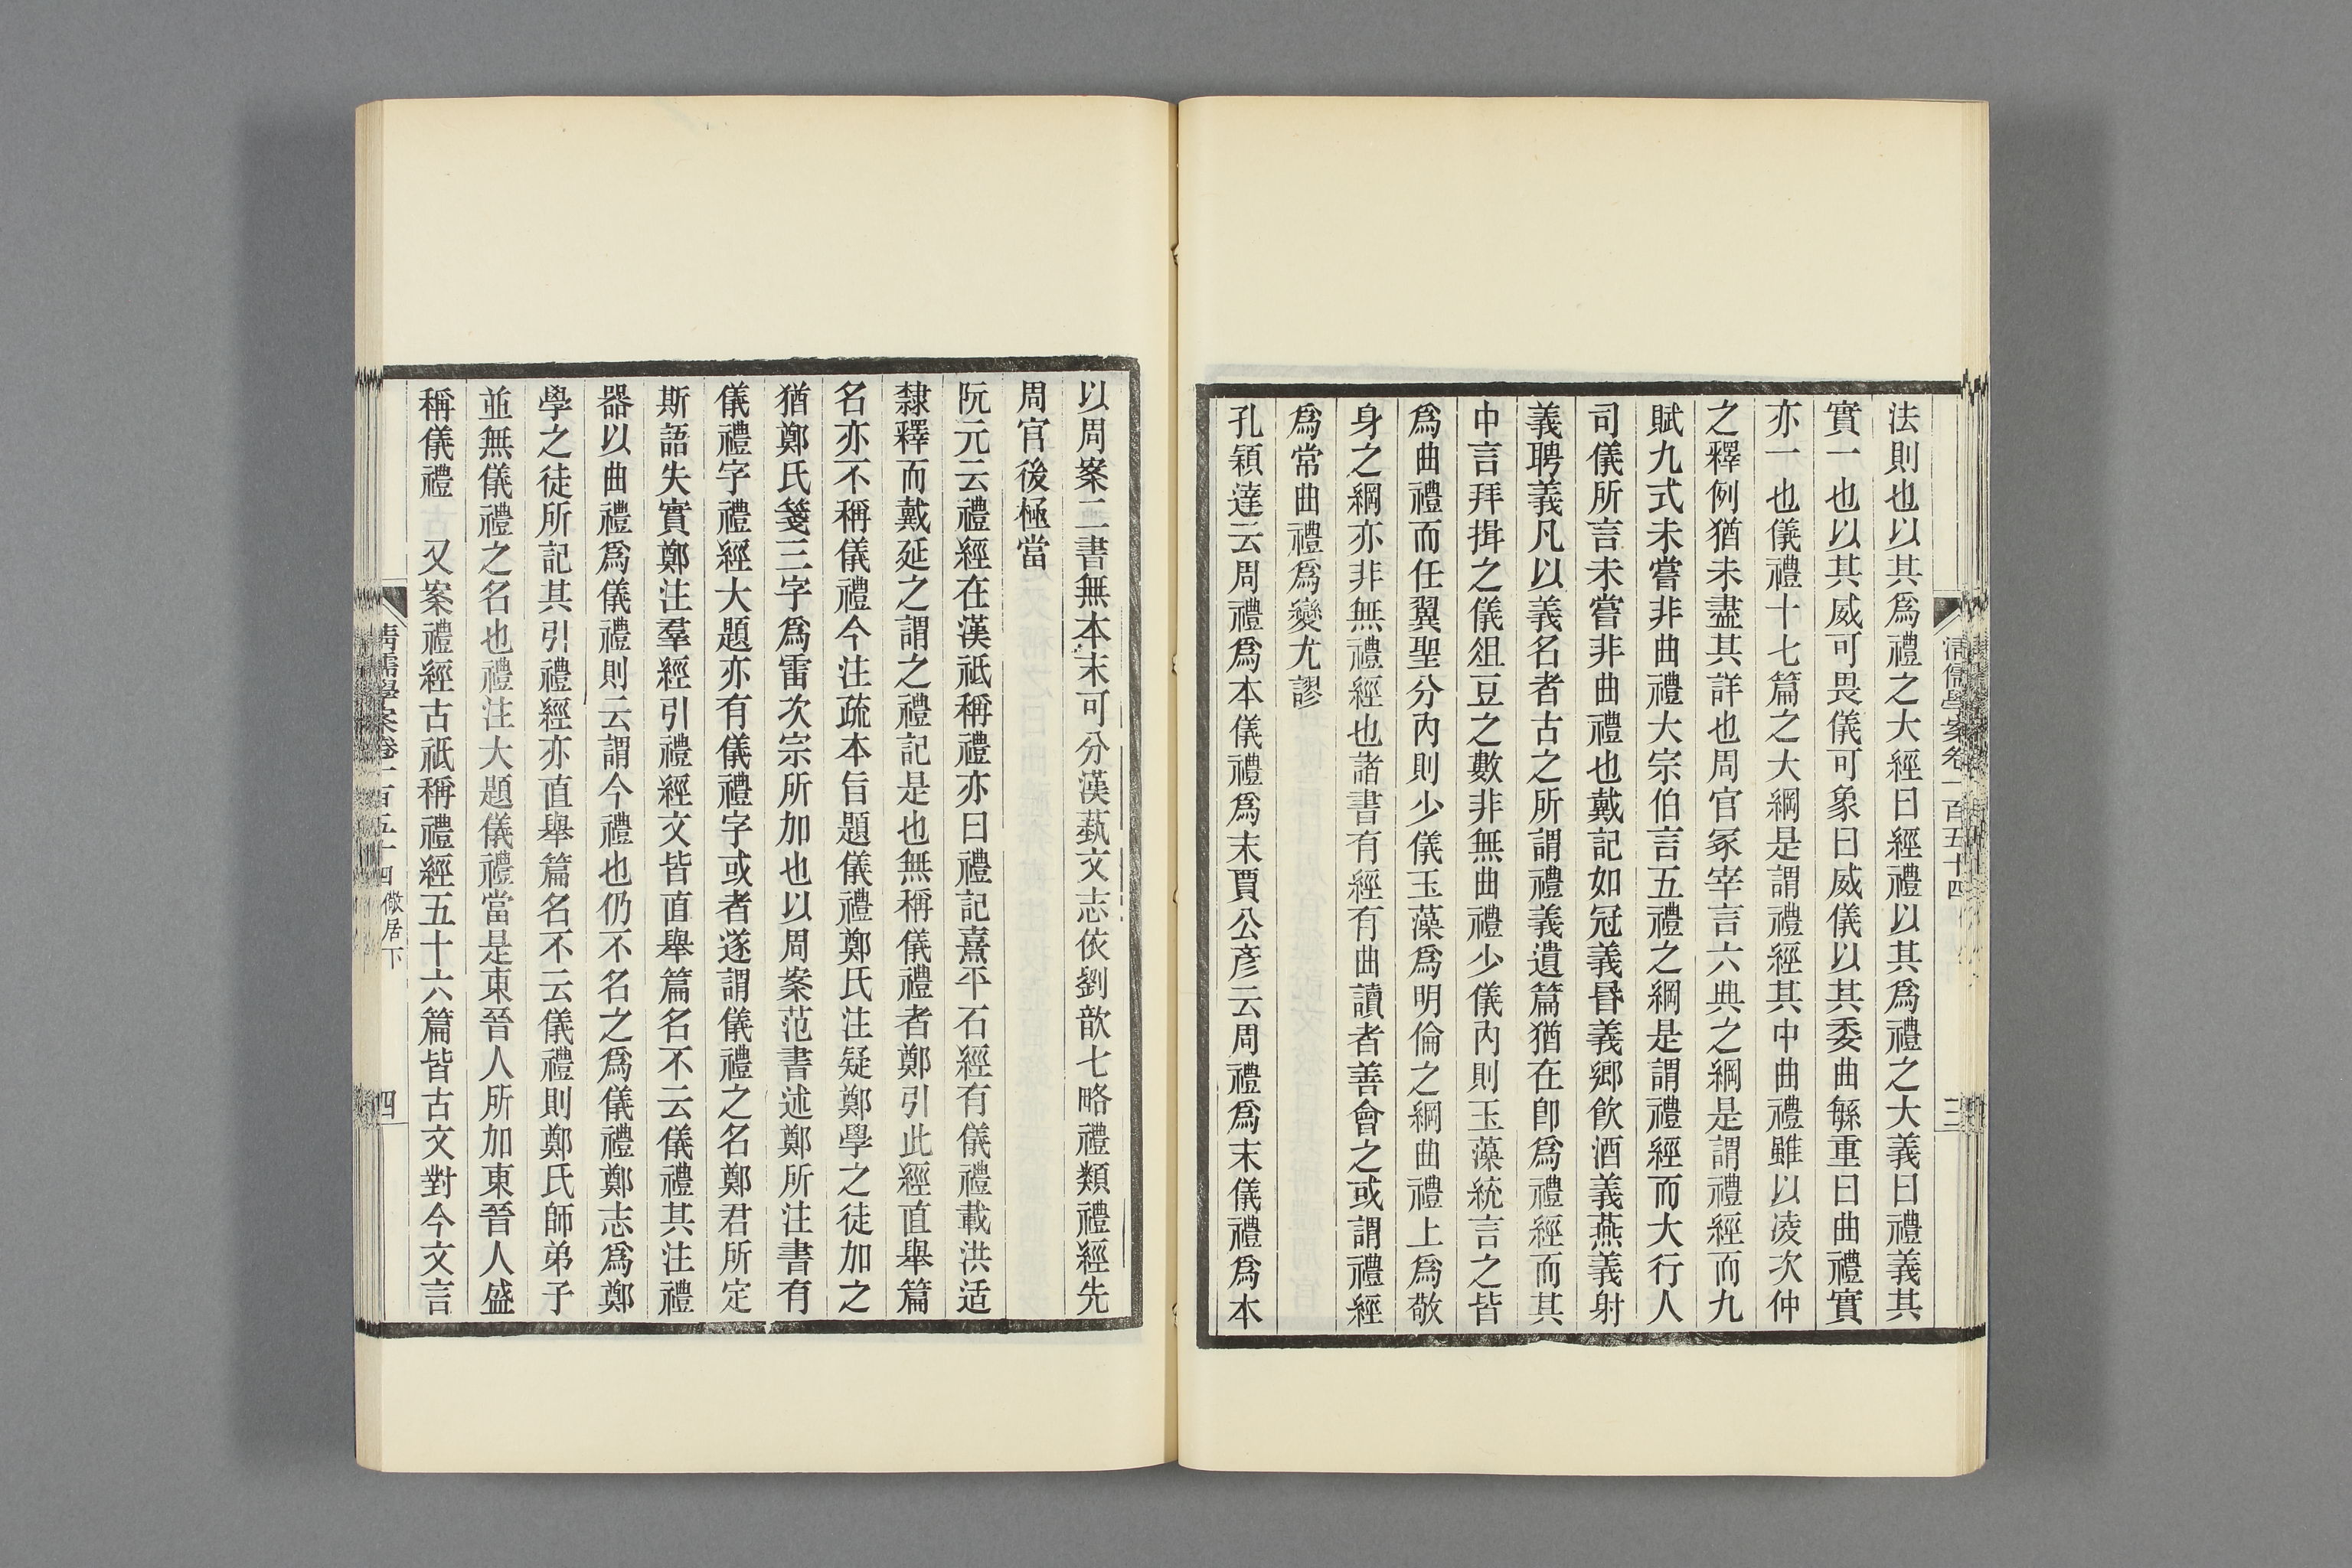 清儒學案卷一百五十四
三
法則也以其爲禮之大經曰經禮以其爲禮之大義曰禮義其
實一也以其威可畏儀可象曰威儀以其委曲緐重曰曲禮實
亦一也儀禮十七篇之大綱是謂禮經其中曲禮雖以凌次仲
之釋例猶未盡其詳也周官冢宰言六典之綱是謂禮經而九
賦九式未嘗非曲禮大宗伯言五禮之綱是謂禮經而大行人
司儀所言未嘗非曲禮也戴記如冠義昬義鄉飲酒義燕義射
義聘義凡以義名者古之所謂禮義遺篇猶在卽爲禮經而其
中言拜揖之儀俎豆之數非無曲禮少儀內則玉藻統言之皆
爲曲禮而任翼聖分內則少儀玉藻爲明倫之綱曲禮上爲敬
身之綱亦非無禮經也諸書有經有曲讀者善會之或謂禮經
爲常曲禮爲變尤謬
孔穎達云周禮爲本儀禮爲末賈公彥云周禮爲末儀禮爲本
以周案二書無本末可分漢蓺文志依劉歆七略禮類禮經先
周官後極當
阮元云禮經在漢祗稱禮亦曰禮記熹平石經有儀禮載洪适
隸釋而戴延之謂之禮記是也無稱儀禮者鄭引此經直舉篇
名亦不稱儀禮今注疏本旨題儀禮鄭氏注疑鄭學之徒加之
猶鄭氏箋三字爲雷次宗所加也以周案范書述鄭所注書有
儀禮字禮經大題亦有儀禮字或者遂謂儀禮之名鄭君所定
斯語失實鄭注羣經引禮經文皆直舉篇名不云儀禮其注禮
器以曲禮爲儀禮則云謂今禮也仍不名之爲儀禮鄭志爲鄭
學之徒所記其引禮經亦直舉篇名不云儀禮則鄭氏師弟子
並無儀禮之名也禮注大題儀禮當是東晉人所加東晉人盛
稱儀禮　又案禮經古祗稱禮經五十六篇皆古文對今文言
清儒學案卷一百五十四　儆居下
四